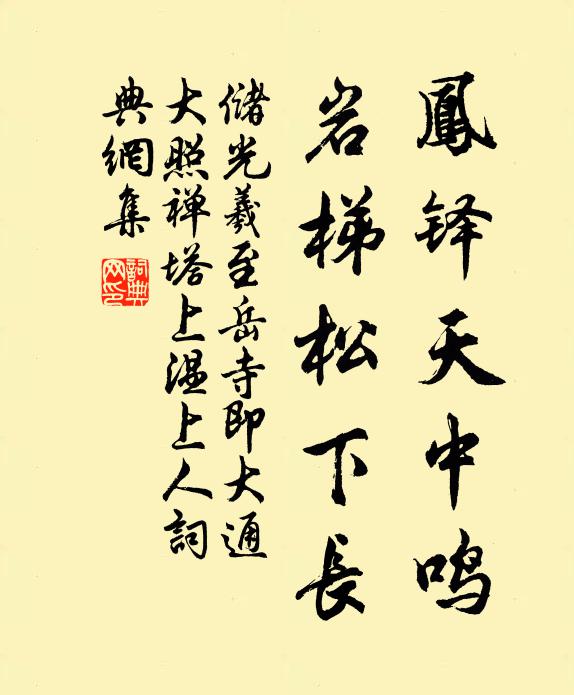 鳳铎天中鸣
岩梯松下長
儲光羲至岳寺即大通
大照禅塔上温上人詞
典網集
詞典网印